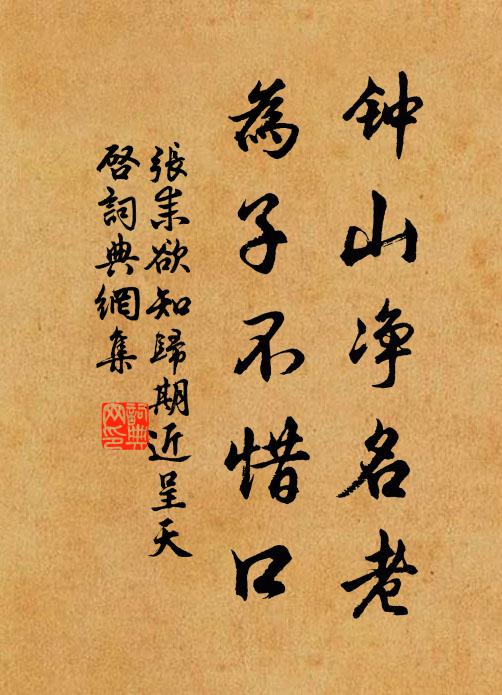 钟山净名老
為子不惜口
張耒欲知歸期近呈天
啓詞典網集
詞典
网印